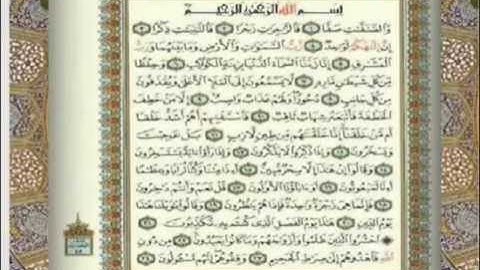 بِسْمِ اللَّهِ الرَّحْمَٰنِ الرَّحِيمِ
وَالصَّافَّاتِ صَفًّا ١ فَالزَّاجِرَاتِ زَجْرًا ٢ فَالتَّالِيَاتِ ذِكْرًا ٣
إِنَّ إِلَٰهَكُمْ لَوَاحِدٌ ٤ رَّبُّ السَّمَاوَاتِ وَالْأَرْضِ وَمَا بَيْنَهُمَا وَرَبُّ
الْمَشَارِقِ ٥ إِنَّا زَيَّنَّا السَّمَاءَ الدُّنْيَا بِزِينَةٍ الْكَوَاكِبِ ٦ وَحِفْظًا
مِّن كُلِّ شَيْطَانٍ مَّارِدٍ ٧ لَّا يَسَّمَّعُونَ إِلَى الْمَلَإِ الْأَعْلَىٰ وَيُقْذَفُونَ
مِن كُلِّ جَانِبٍ ٨ دُحُورًا وَلَهُمْ عَذَابٌ وَاصِبٌ ٩ إِلَّا مَنْ خَطِفَ
الْخَطْفَةَ فَأَتْبَعَهُ شِهَابٌ ثَاقِبٌ ١٠ فَاسْتَفْتِهِمْ أَهُمْ أَشَدُّ خَلْقًا
أَم مَّنْ خَلَقْنَا إِنَّا خَلَقْنَاهُم مِّن طِينٍ لَّازِبٍ ١١ بَلْ عَجِبْتَ
وَيَسْخَرُونَ ١٢ وَإِذَا ذُكِّرُوا لَا يَذْكُرُونَ ١٣ وَإِذَا رَأَوْا آيَةً يَسْتَسْخِرُونَ
١٤ وَقَالُوا إِنْ هَٰذَا إِلَّا سِحْرٌ مُّبِينٌ ١٥ أَإِذَا مِتْنَا وَكُنَّا تُرَابًا وَعِظَامًا
أَإِنَّا لَمَبْعُوثُونَ ١٦ أَوَآبَاؤُنَا الْأَوَّلُونَ ١٧ قُلْ نَعَمْ وَأَنتُمْ دَاخِرُونَ
١٨ فَإِنَّمَا هِيَ زَجْرَةٌ وَاحِدَةٌ فَإِذَا هُمْ يَنظُرُونَ ١٩ وَقَالُوا يَا وَيْلَنَا هَٰذَا
يَوْمُ الدِّينِ ٢٠ هَٰذَا يَوْمُ الْفَصْلِ الَّذِي كُنتُم بِهِ تُكَذِّبُونَ ٢١
احْشُرُوا الَّذِينَ ظَلَمُوا وَأَزْوَاجَهُمْ وَمَا كَانُوا يَعْبُدُونَ ٢٢ مِن دُونِ
اللَّهِ فَاهْدُوهُمْ إِلَىٰ صِرَاطِ الْجَحِيمِ ٢٣ وَقِفُوهُمْ إِنَّهُم مَّسْئُولُونَ ٢٤